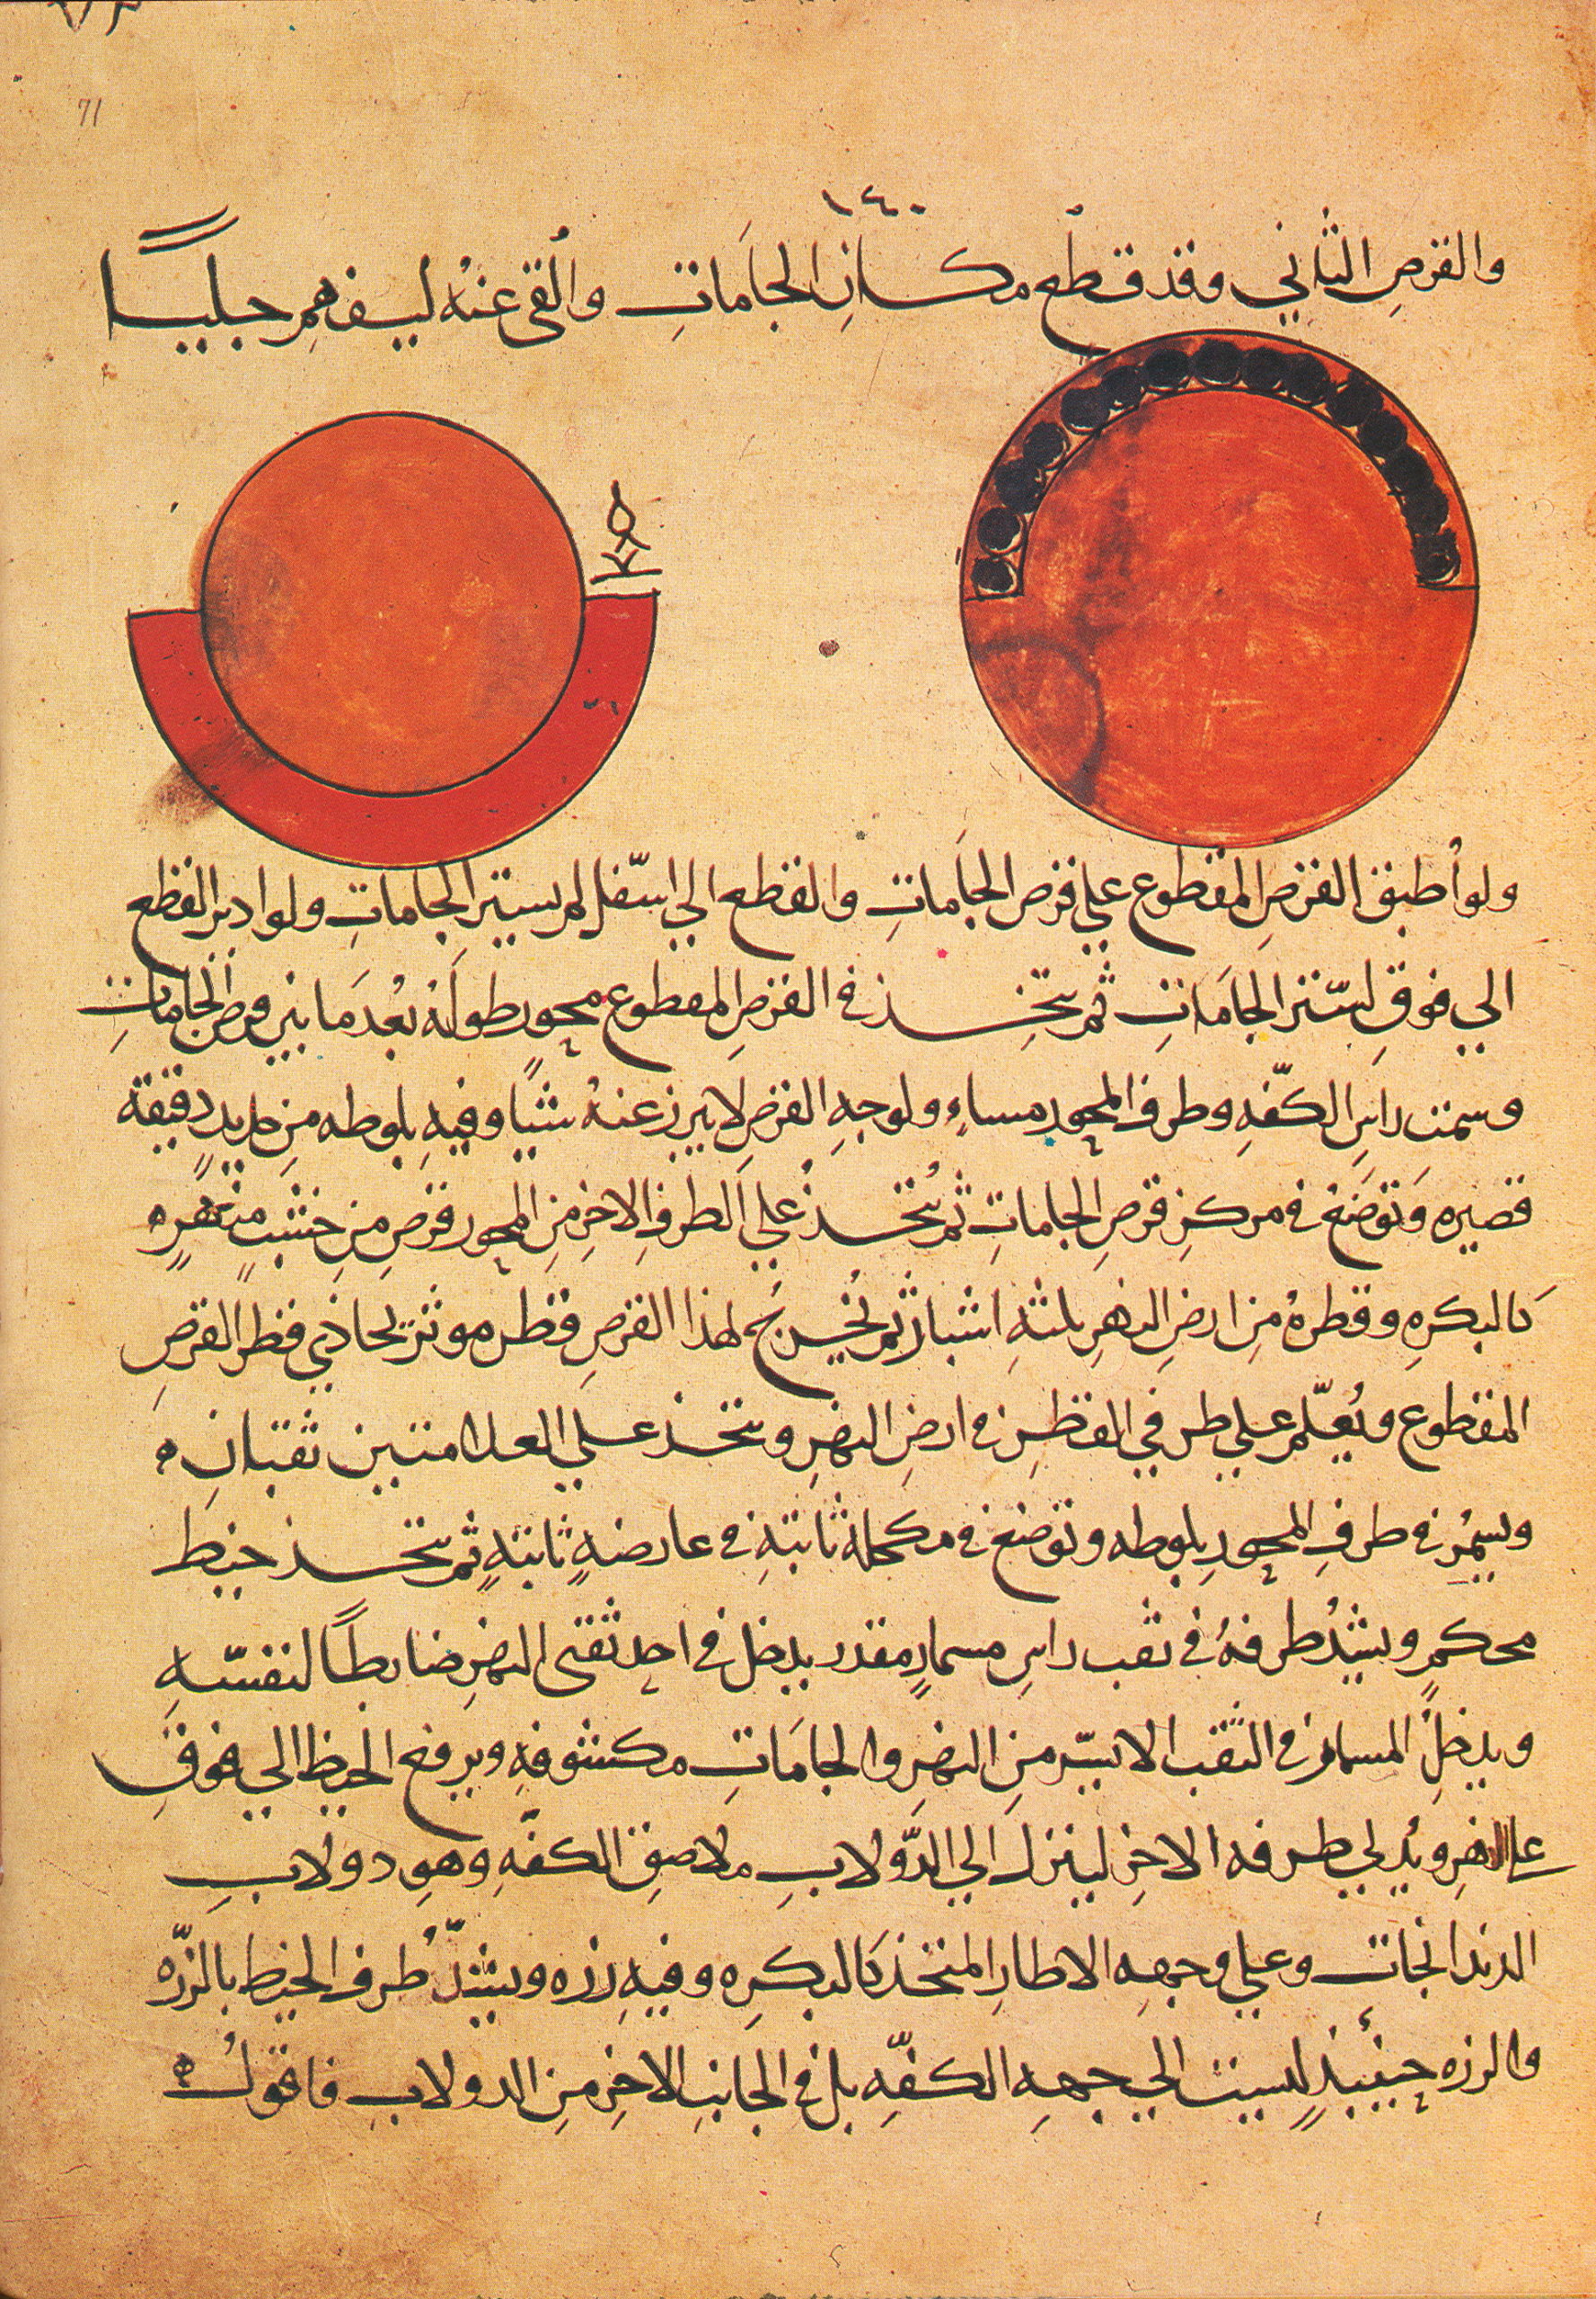 71
١٤٠
والقرصِ الثاني وقد قطع مكانِ الجاَماتِ وأُلقى عنهُ ليفهم جلياً
ولو أُطبق القرصِ المقطوع علي قرص الجاَماتِ والقطع الي اسّفل لم يستر الجاماتِ ولو ادير القطع
الي فوقِ لسّتر الجاَماتِ ثم يتخذ في القرصِ المقطوع محور طولَهُ بُعدَ ما بين قرص الجاماتِ
وسمت راسِ الكفّهِ وطرف المحور مساءٍ ولوجهِ القرصِ لا يبرز عنهُ شيًا وفيهِ بلوطه مِن حديدٍ دقيقة
قصيره وَتوضَع في مركزِ قرصِ الجاماتِ ثم يُتخذُ علي الطرفِ الاخرِ مِن المحور قرصِ مِن خشبٍ منهرٍ ه
كالبكرهِ وقطرهُ مِن ارضِ النهرِ ثلثهِ اشبار ثم يُخرج لهذا القرصِ قطر موتر يحاذي قطر القرصِ
المقطوع ويُعلّم علي طرفي القطرِ في ارضِ النهرِ ويتخذ علي العلامتين ثقبانِ ه
ويسمُر في طرفِ المحورِ بلوطه وتوضع في مكحلة ثابتةِ في عارضةٍ ثابتةٍ ثم يتخذ خيط
محكمٍ ويشدُ طرفهُ في ثقب راسِ مسمارٍ مقدر يدخل في احد ثقبى النهرِ ضابطاً لنفسّهِ
ويدخلُ المسمار في الثقب الايسّر مِن النهرِ والجاَماتِ مكشوفهِ ويرفع الخيط الي فوقِ
على النهرِ ويُدلي طرفه الاخر لينزل الي الدّولابِ ملاصق الكفّهِ وهو دولابِ
الدندانجات وعلي وجههِ الاطارِ المتخذ كالبكرهِ وفيهِ رزه ويشدّ طُرف الخيط بالرزّه
والرزه حينئيذٍ ليست الي جههِ الكفّهِ بل في الجانبِ الاخرِ مِن الدولابِ فاقولُ ه